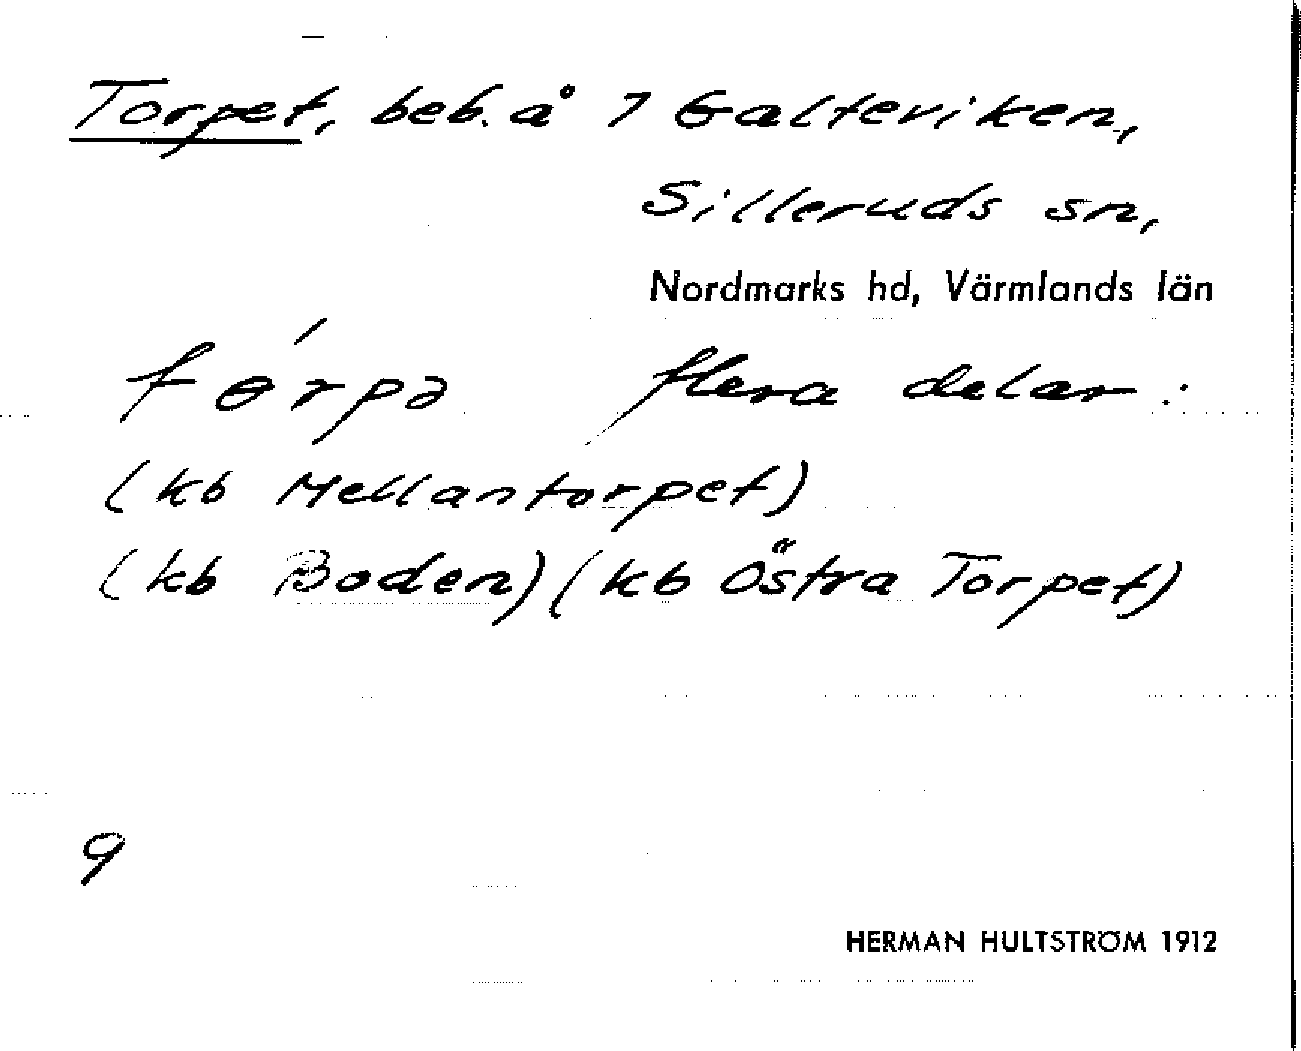 Torpet, beb. å 7 Galteviken,
Silleruds sn,
Nordmarks hd, Värmlands län
tɵ́rpə flera delar:
(kb Mellantorpet)
(kb Boden) (kb Östra Torpet)
9
HERMAN HULTSTRÖM 1912